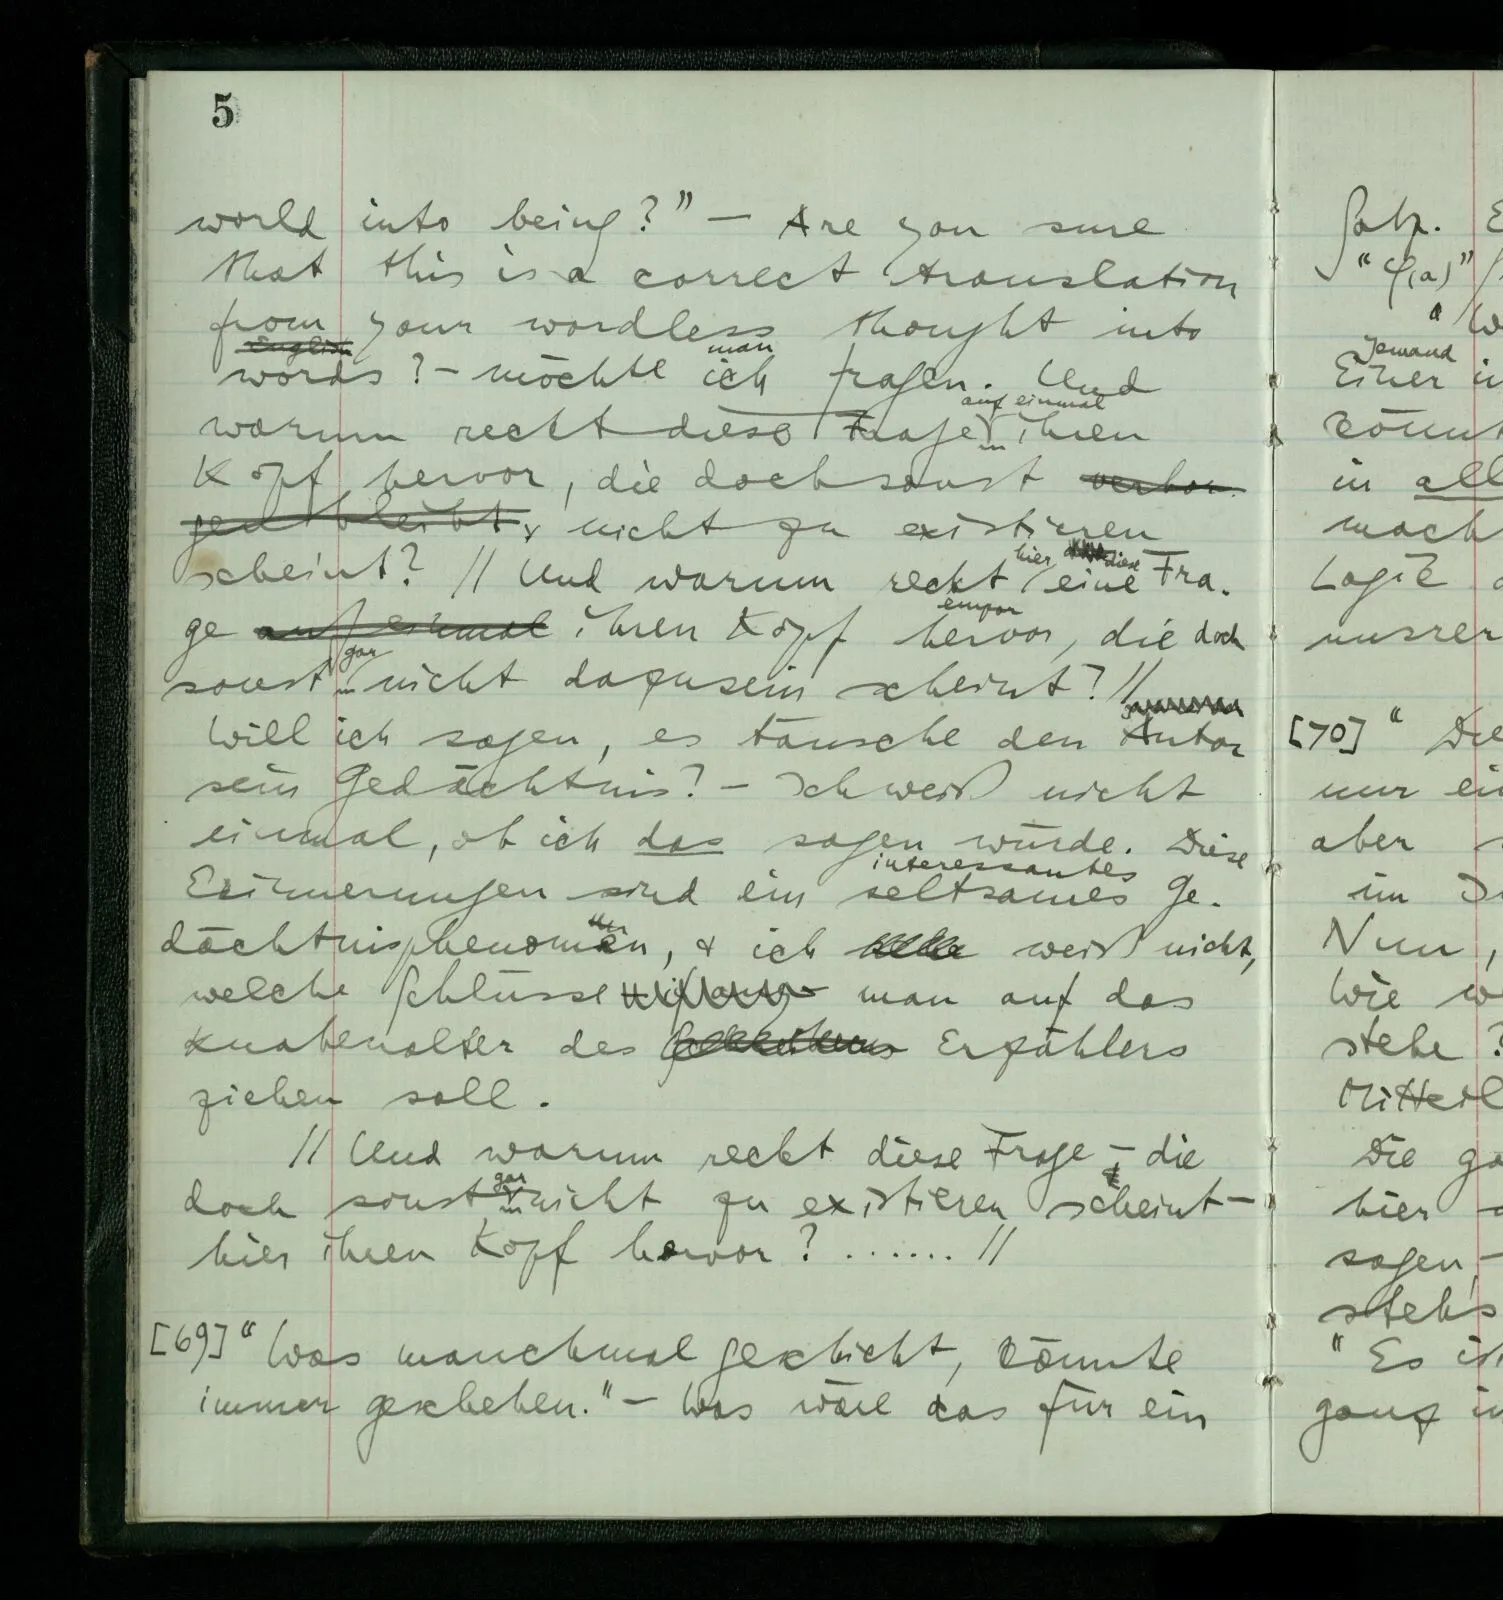 5
world into being?" – Are you sure
that this is a correct translation
from your wordless thought into
English man
words? – möchte ich fragen. Und
auf einmal
warum reckt diese Frage ihren
Kopf hervor, die doch sonst verbor-
gen bleibt, nicht zu existieren
scheint? // Und warum reckt hier diese eine Fra-
ge auf einmal ihren Kopf hervor, die doch
empor
sonst gar nicht dazusein scheint? //
Will ich sagen, es täusche den Autor
sein Gedächtnis? – Ich weiß nicht
einmal, ob ich das sagen würde. Diese
interessantes
Erinnerungen sind ein seltsames Ge-
dächtnisphenomen, & ich weiß nicht,
welche Schlüsse man auf das
Knabenalter des Erzählers
ziehen soll.
// Und warum reckt diese Frage – die
doch sonst gar nicht zu existieren scheint –
hier ihren Kopf hervor? ....... //
[69] "Was manchmal geschieht, könnte
immer geschehen." – Was wäre das für ein
Satz. E
"φ(a)"
"W
Jemand
Einer i
könnt
in all
mach
Logik
unsrer
[70] "Die
nur ei
aber
im
Nun,
Wie w
stehe?
Mitteil
Die ga
hier
sagen, –
steh's
"Es is
ganz i